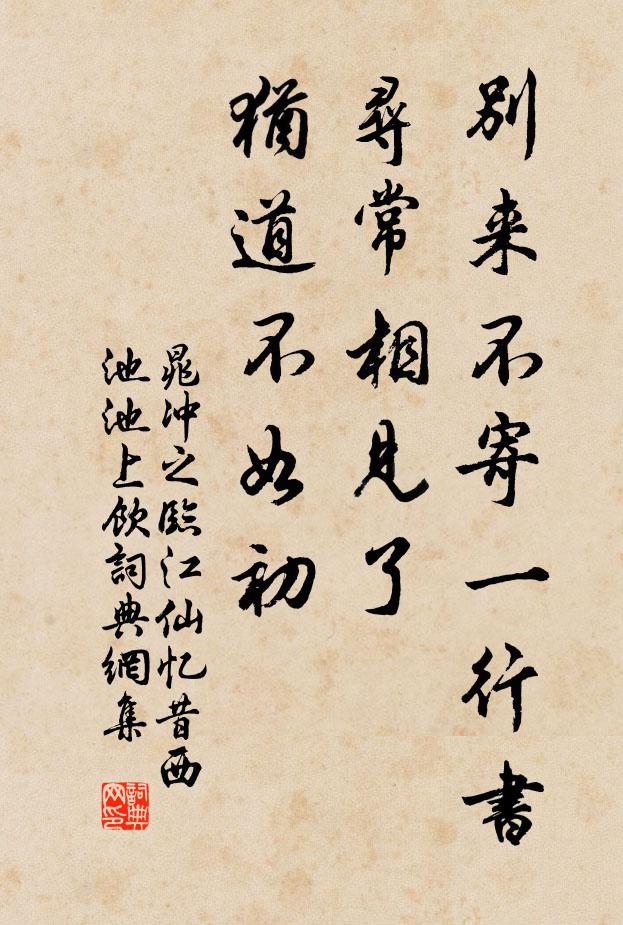 別来不寄一行書
尋常相見了
猶道不如初
晁冲之臨江仙忆昔西
池池上飲詞典網集
詞典网印